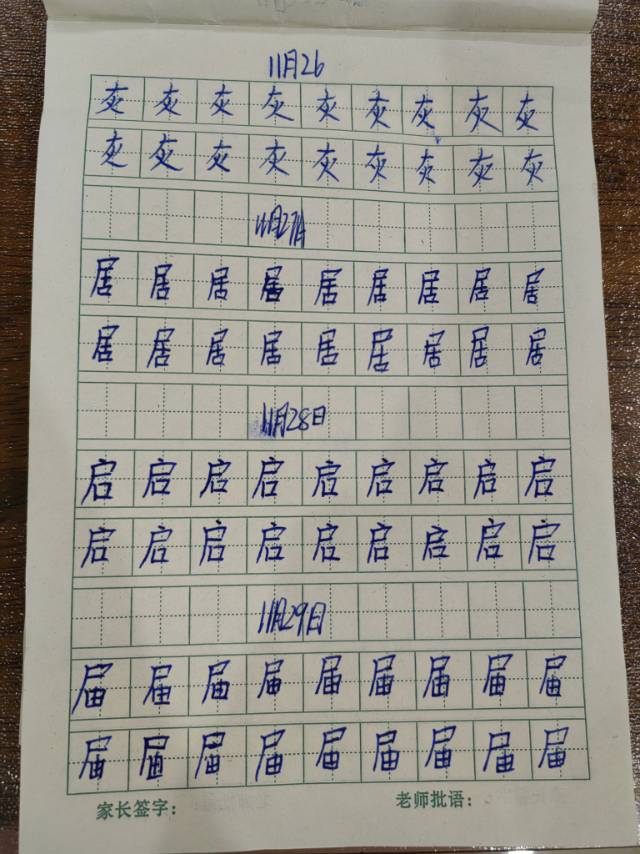 11月26
灰灰灰灰灰灰灰灰灰
灰灰灰灰灰灰灰灰灰
11月27日
居居居居居居居居居
居居居居居居居居居
11月28日
启启启启启启启启启
启启启启启启启启启
11月29日
届届届届届届届届届
届届届届届届届届届
家长签字： 老师批语：